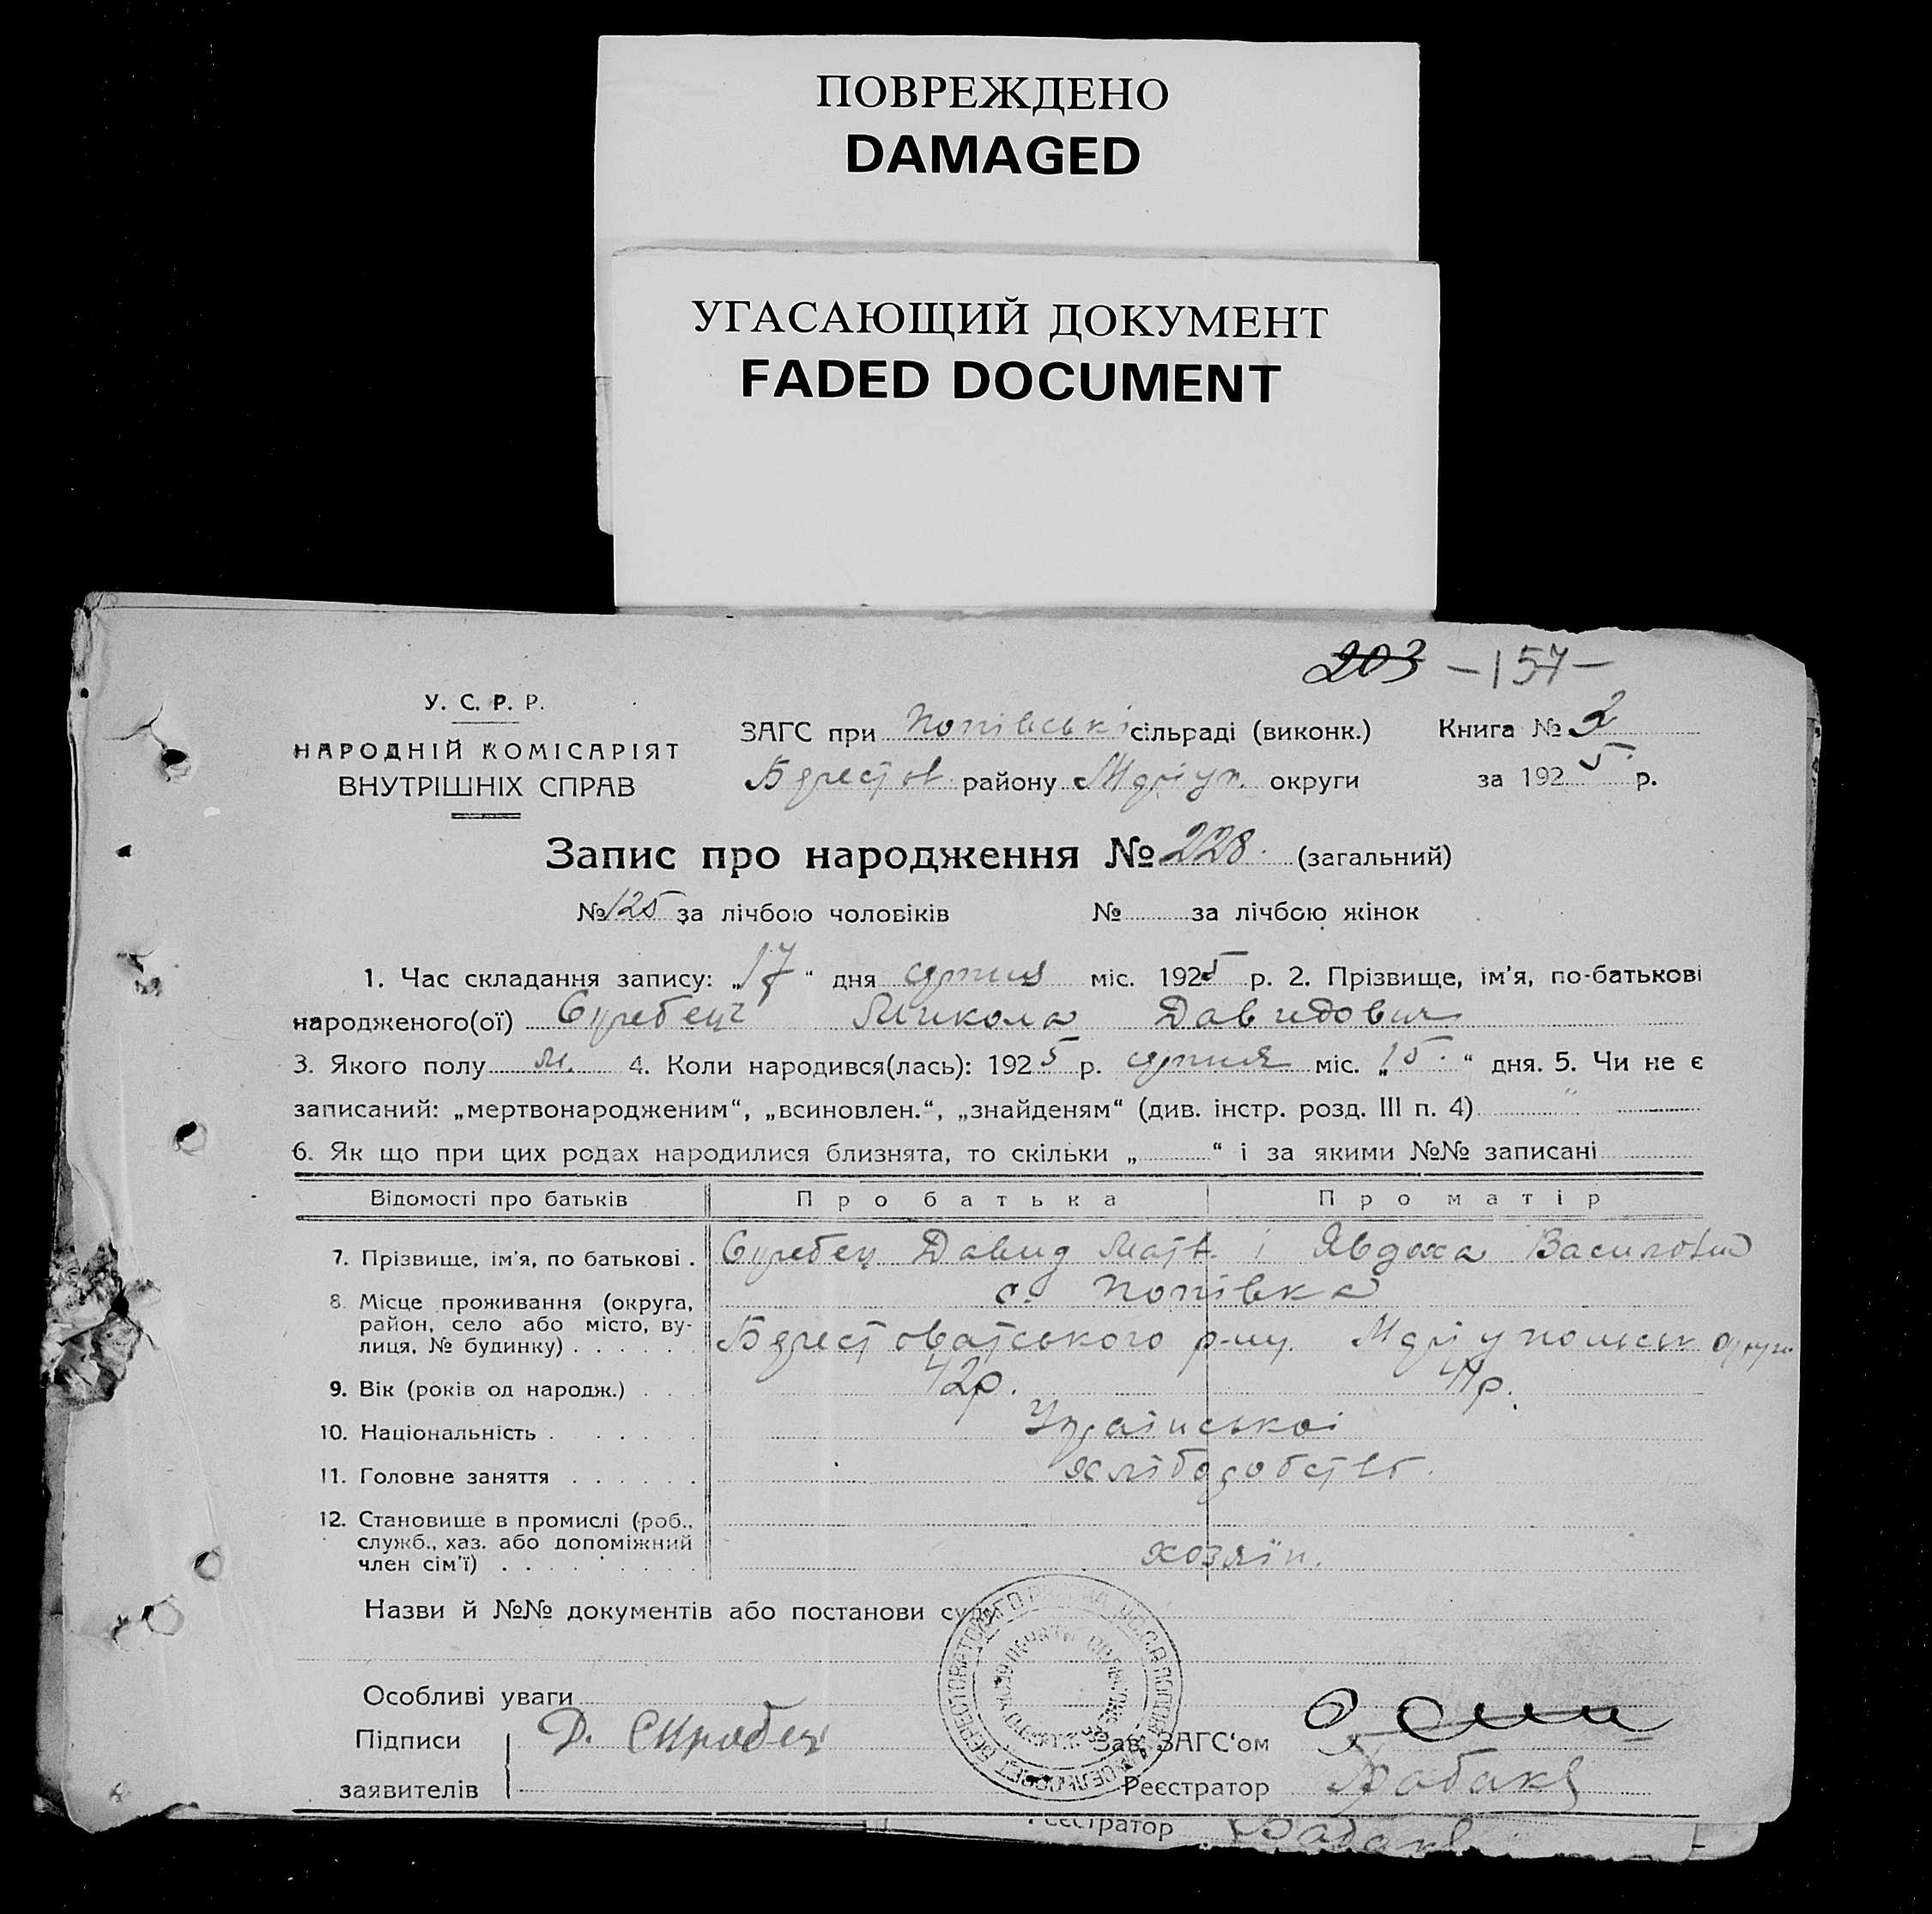 ПОВРЕЖДЕНО
DAMAGED
УГАСАЮЩИЙ ДОКУМЕНТ
FADED DOCUMENT
203 -157-
У. С. Р. Р.
НАРОДНІЙ КОМІСАРІЯТ
ВНУТРІШНІХ СПРАВ
ЗАГС при Попівські сільраді (виконк.) Книга № 2
Берестов. району Маріуп. округи за 1925 р.
Запис про народження № 228. (загальний)
№ 125 за лічбою чоловіків № за лічбою жінок
1. Час складання запису: „17“ дня серпня міс. 1925 р. 2. Прізвище, ім'я, по-батькові
народженого(ої) Микола Давидович
3. Якого полу м. 4. Коли народився(лась): 1925 р. серпня міс. „15.“ дня. 5. Чи не є
записаний: „мертвонародженим“, „всиновлен.“, „знайденям“ (див. інстр. розд. III п. 4)
6. Як що при цих родах народилися близнята, то скільки „ “ і за якими №№ записані
Відомості про батьків Про батька Про матір
7. Прізвище, ім'я, по батькові . Давид Матв. і Явдоха Василовна
8. Місце проживання (округа, район, село або місто, вулиця, № будинку) . . . . . .
с. Попівка
Берестоватського р-ну. Маріупольськ округи
9. Вік (років од народж.) . . . 42р. 41р.
10. Національність . . . . . . Української
11. Головне заняття . . . . . . хліборобств.
12. Становище в промислі (роб.,
служб., хаз. або допоміжний
член сім'ї) . . . . . . . . хозяїн.
Назви й №№ документів або постанови суду
Особливі уваги
Підписи
заявителів
Д.
Зав. ЗАГС'ом
Реєстратор
Реєстратор